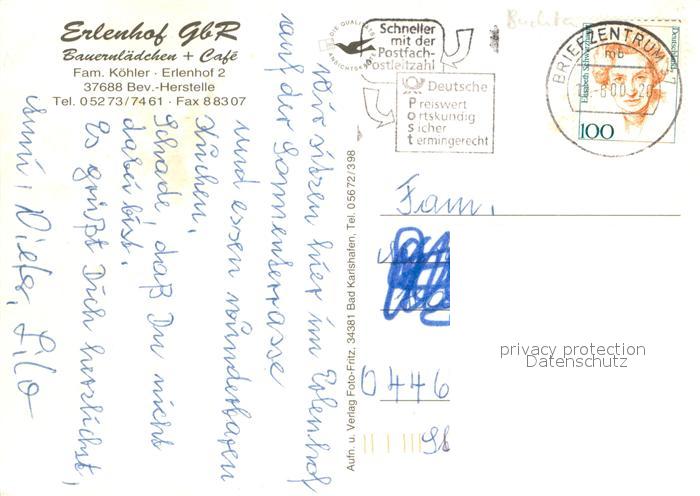 Erlenhof GbR
Bauernlädchen + Café
Fam. Köhler · Erlenhof 2
37688 Bev.-Herstelle
Tel. 05273/7461 · Fax 88307
Wir sitzen hier im Erlenhof
auf der Sonnenterrasse
und essen wunderbaren
Kuchen.
Schade, daß Du nicht
dabei bist.
Es grüßt Dich herzlichst,
Dieter, Lilo
Aufn. u. Verlag Foto-Fritz, 34381 Bad Karlshafen, Tel. 05672/398
DIE QUALITÄTS
ANSICHTSK
Schneller
mit der
Postfach-
Postleitzahl
Deutsche
Preiswert
ortskundig
sicher
termingerecht
BRIEFZENTRUM
mb
Elisabeth Schwarzhaupt
Deutschland
100
Fam.
0446
privacy protection
Datenschutz